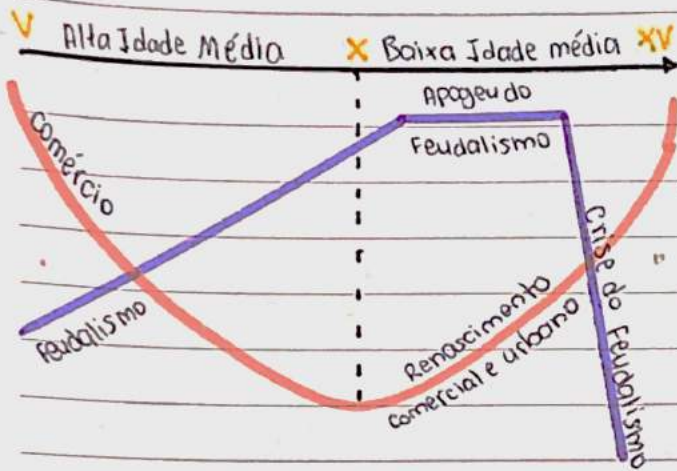 V Alta Idade Média X Baixa Idade média XV
Apogeu do
Feudalismo
Comércio
Feudalismo
Renascimento
comercial e urbano
Crise do Feudalismo